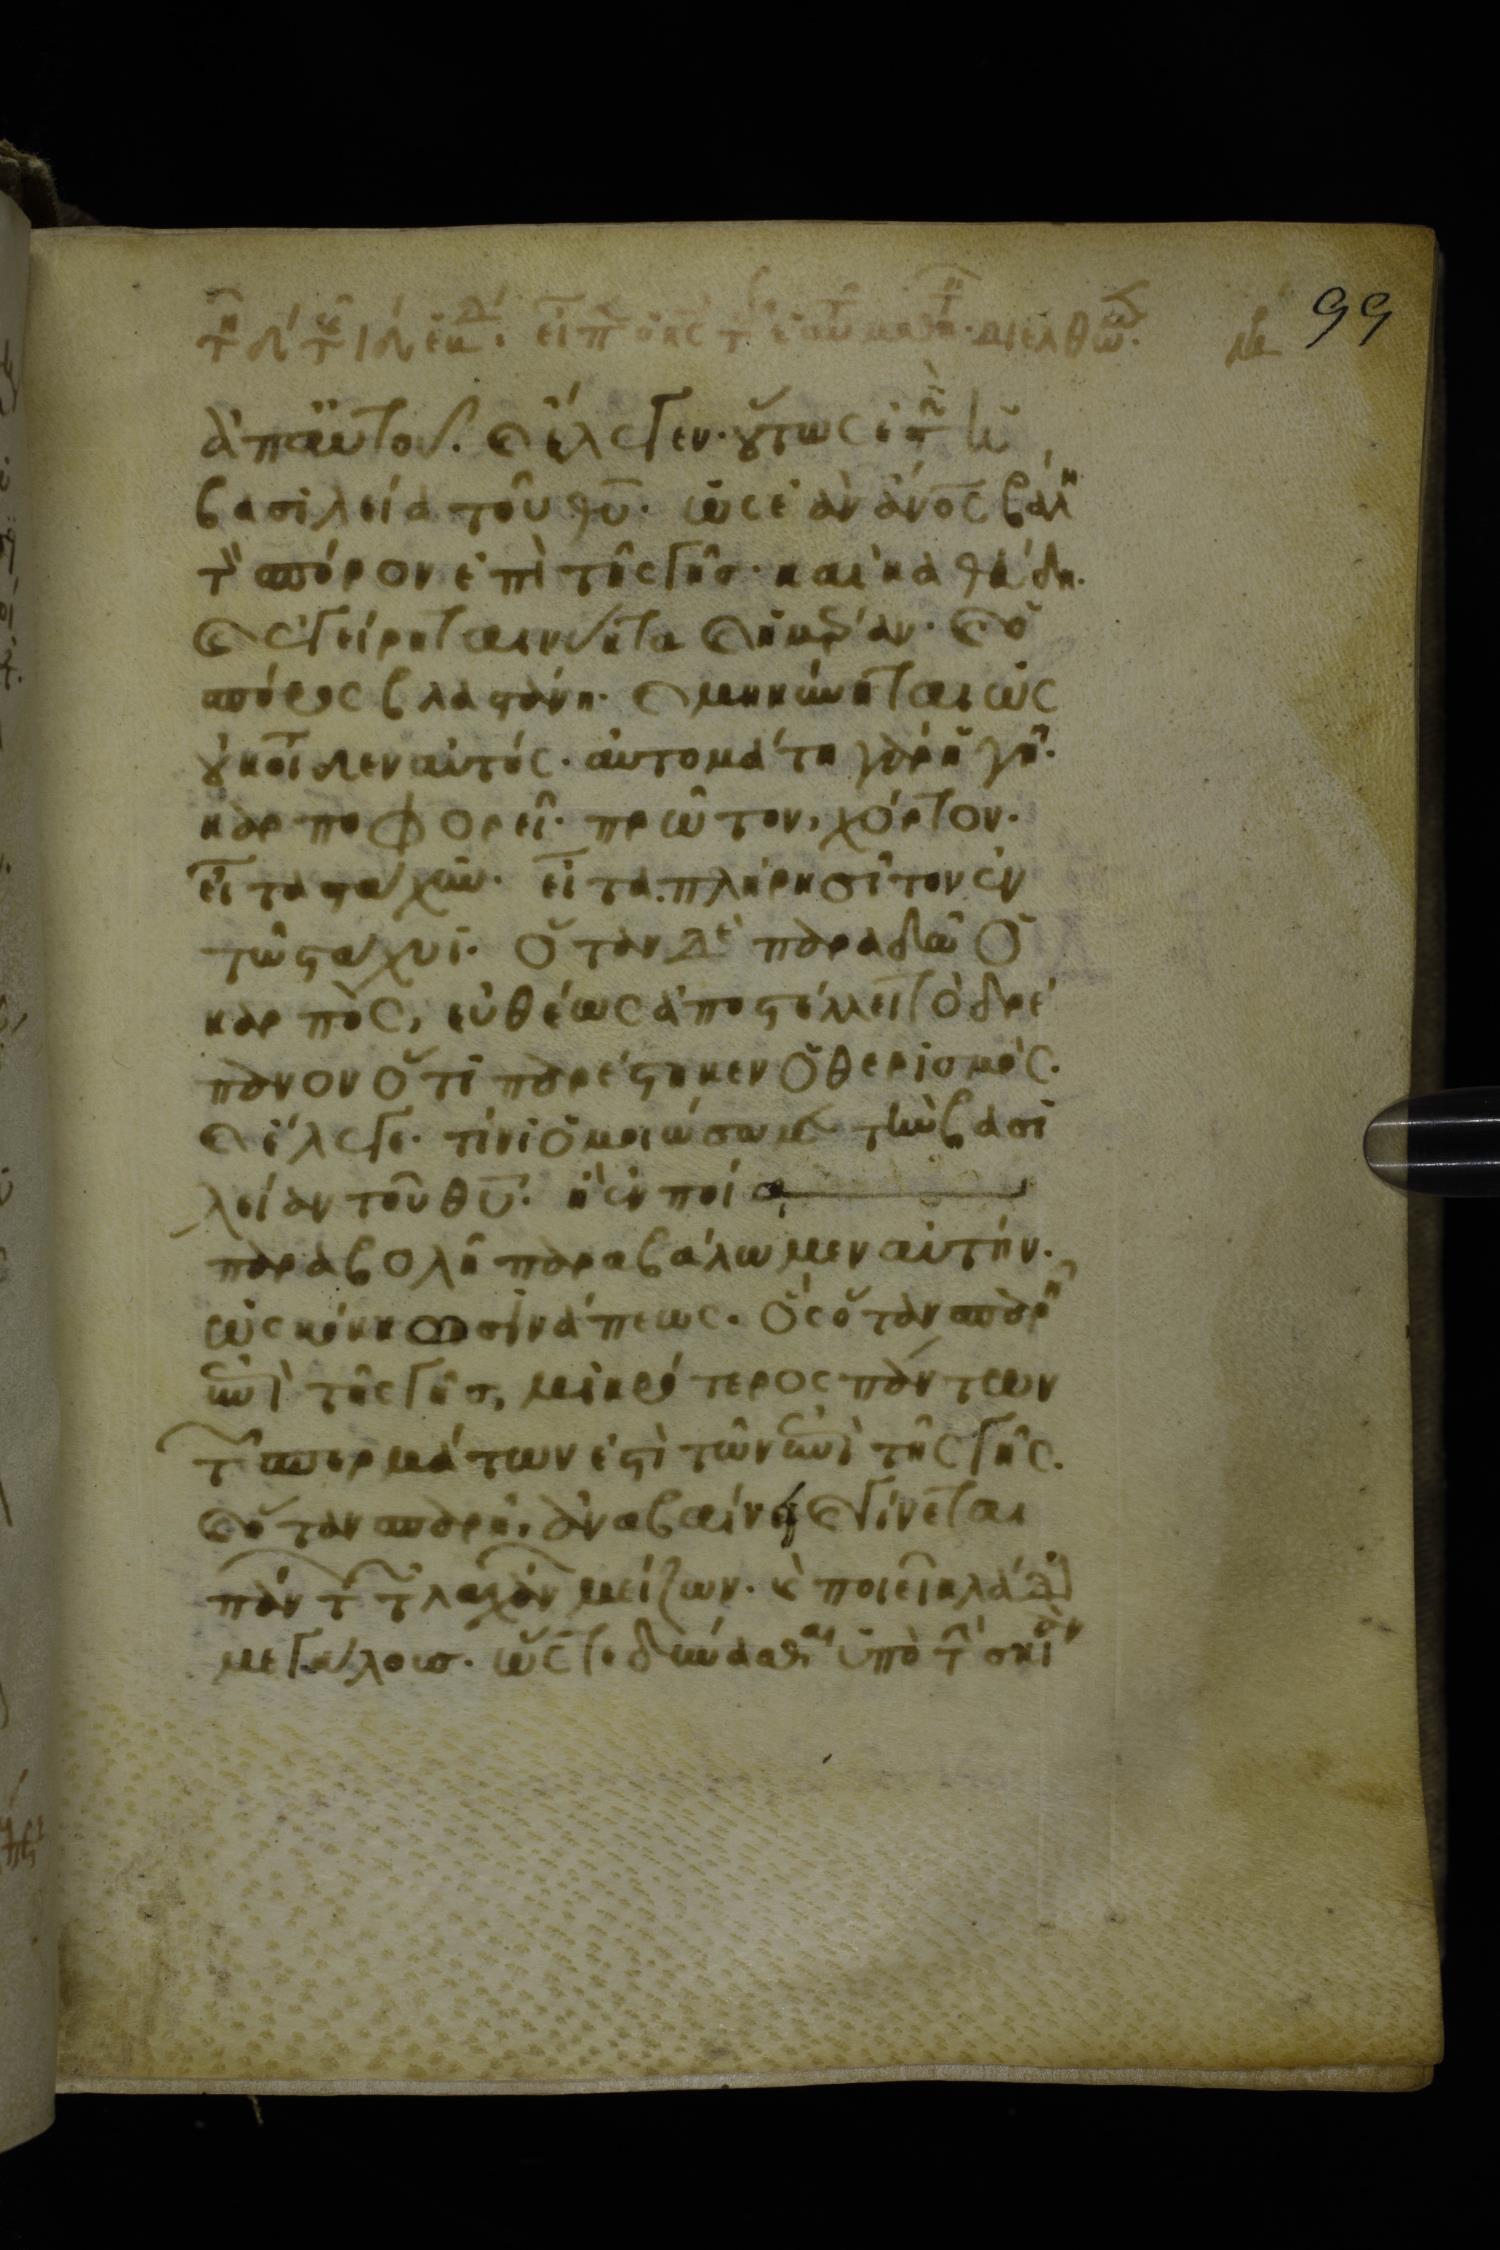 99
ἀπ αὐτοῦ. καὶ ἔλεγεν. οὕτως ἐστὶν ἡ
βασιλεία τοῦ θυ. ὡς ἐὰν ἄνος βάλη
τὸν σπόρον ἐπὶ τῆς γῆς. καὶ καθεύδη.
καὶ ἐγείρηται νύκτα καὶ ἡμέραν. καὶ ὁ
σπόρος βλαστάνη. καὶ μηκύνηται ὡς
οὐκ οἶδεν αὐτός. αὐτομάτη γὰρ ἡ γῆ.
καρποφορεῖ. πρῶτον, χόρτον.
εἶτα στάχυν. εἶτα πλήρη σῖτον ἐν
τῶ στάχυϊ. ὅταν δὲ παραδῶ ὁ
καρπὸς, εὐθέως ἀποστέλλει τὸ δρέ
πανον ὅτι παρέστηκεν ὁ θερισμός.
καὶ ἔλεγε. τίνι ὁμοιώσωμεν τὴν βασι
λείαν τοῦ θυ. ἢ ἐν ποία
παραβολῆ παραβάλωμεν αὐτήν.
ὡς κόκκω σινάπεως. ὃς ὅταν σπαρῆ
ἐπὶ τῆς γῆς, μικρότερος πάντων
τῶν σπερμάτων ἐστὶ τῶν ἐπὶ τῆς γῆς.
καὶ ὅταν σπαρῆ, ἀναβαίνει καὶ γίνεται
πάντων τῶν λαχάνων μείζων. καὶ ποιεῖ κλάδους
μεγάλους. ὥστε δύνασθαι ὑπὸ τὴν σκιὰν